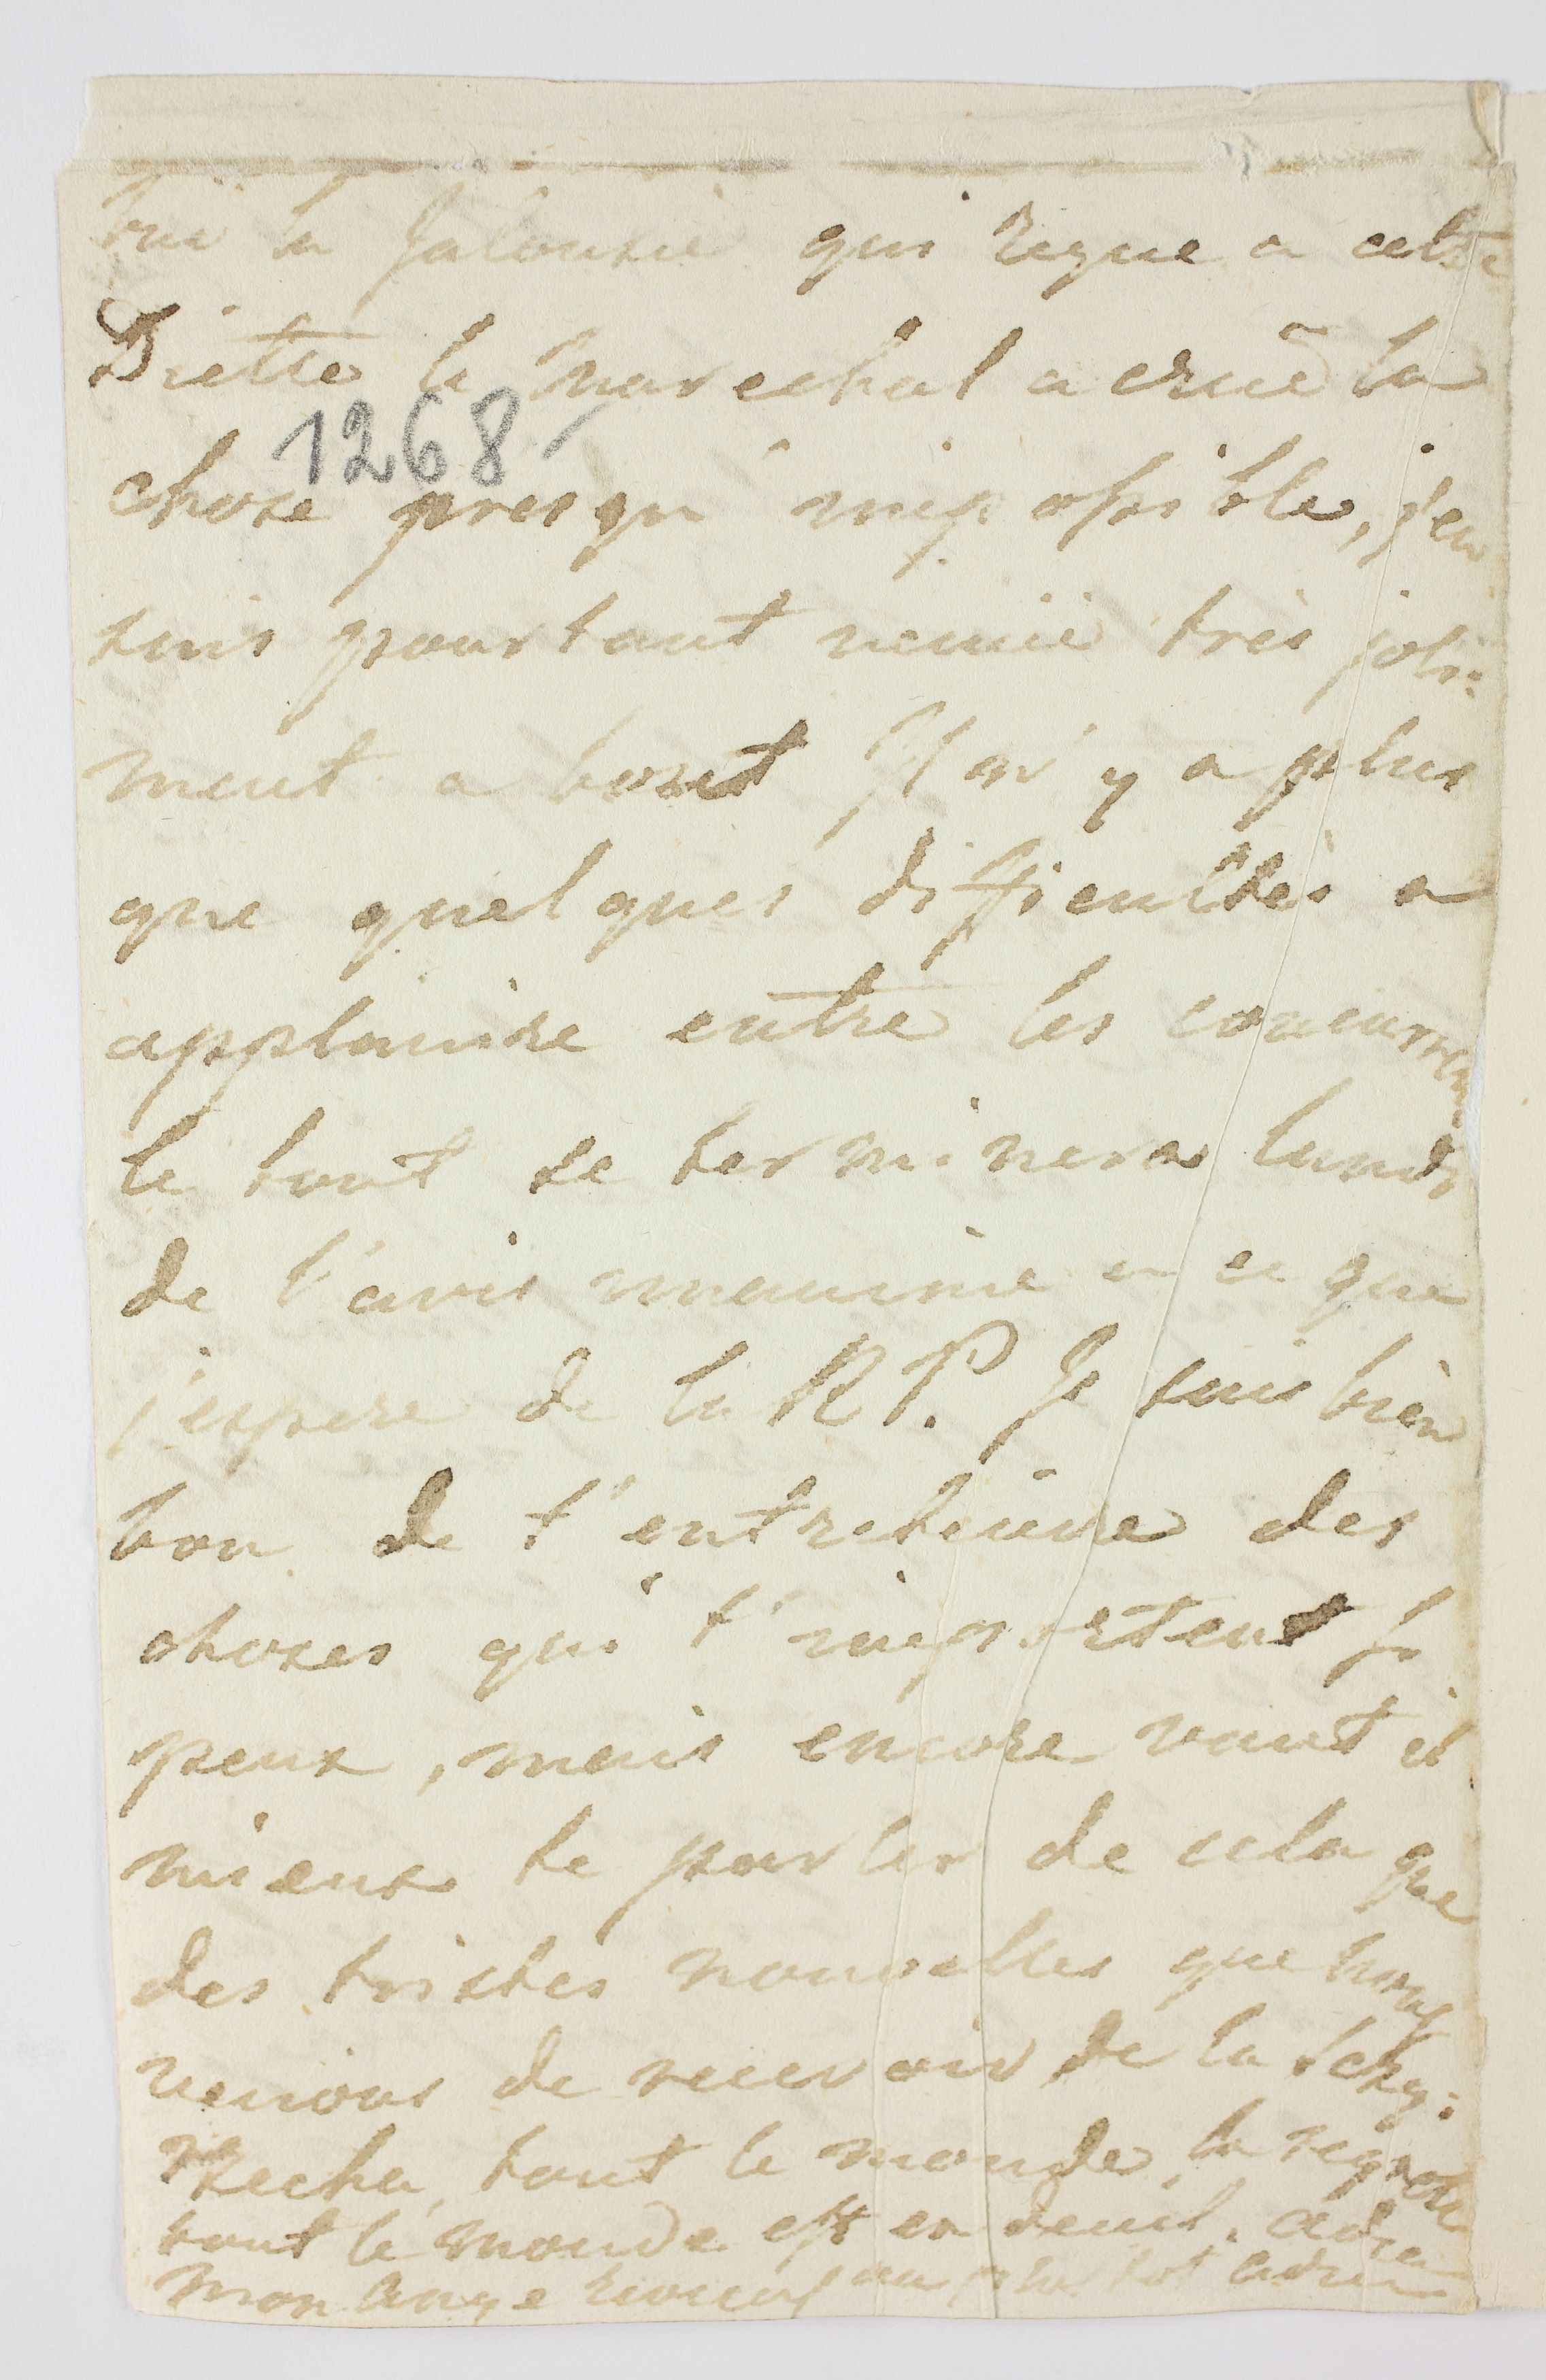 la Jalousie qui regne a cette
Diette le Marechal a cruë la
1268
chose presqu' impossible, j'en
suis pourtant venuë très joli:
ment a bout Il n'y a plus
que quelques difficultés a
applanire entre les
le tout se terminera lundi
de l'avis unanime a ce que
j'espere de la RP. Je suis bien
bon de t'entretenire des
choses qui t'importent si
peux, mais encore vaut il
mieux te parler de cela que
des tristes nouvelles que nous
venions de recevoir de la
tout le monde la regrette
tout le monde est en deuil. adieu
mon Ange au plus tot adieu